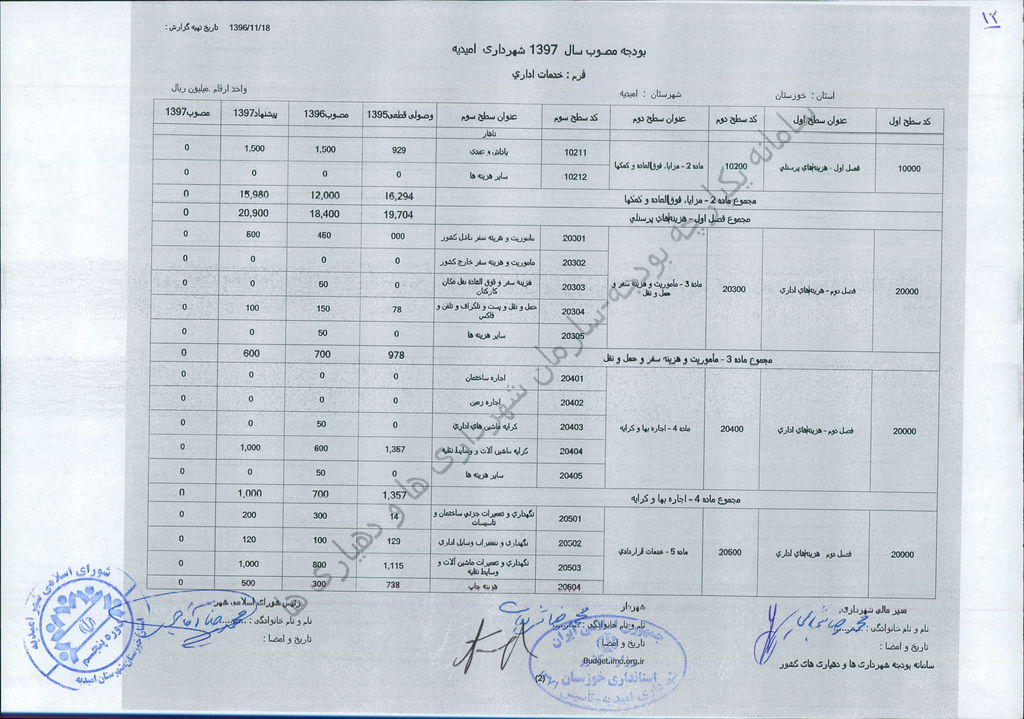 ۱۲
تاریخ تهیه گزارش : 1396/11/18
بودجه مصوب سال 1397 شهرداری امیدیه
فرم : خدمات اداري
استان : خوزستان شهرستان : امیدیه واحد ارقام .میلیون ریال
کد سطح اول عنوان سطح اول کد سطح دوم عنوان سطح دوم کد سطح سوم عنوان سطح سوم وصولی قطعی1395 مصوب1396 پیشنهاد1397 مصوب1397
ناهار
10000 فصل اول - هزینه‌هاي پرسنلي 10200 ماده 2 - مزایا، فوق‌العاده و کمکها 10211 پاداش و عیدی 929 1,500 1,500 0
10212 سایر هزینه ها 0 0 0 0
مجموع ماده 2 - مزایا، فوق‌العاده و کمکها 16,294 12,000 15,980 0
مجموع فصل اول - هزینه‌هاي پرسنلي 19,704 18,400 20,900 0
20000 فصل دوم - هزینه‌هاي اداري 20300 ماده 3 - مأموریت و هزینه سفر و حمل و نقل 20301 ماموریت و هزینه سفر داخل کشور 0
20302 ماموریت و هزینه سفر خارج کشور 0 0 0 0
20303 هزینه سفر و فوق العاده نقل مکان کارکنان 0 50 0 0
20304 حمل و نقل و پست و تلگراف و تلفن و فاکس 78 150 100 0
20305 سایر هزینه ها 0 50 0 0
مجموع ماده 3 - مأموریت و هزینه سفر و حمل و نقل 978 700 600 0
20000 فصل دوم - هزینه‌هاي اداري 20400 ماده 4 - اجاره بها و کرایه 20401 اجاره ساختمان 0 0 0 0
20402 اجاره زمین 0 0 0 0
20403 کرایه ماشین هاي اداري 0 50 0 0
20404 کرایه ماشین آلات و وسایط نقلیه 1,357 600 1,000 0
20405 سایر هزینه ها 0 50 0 0
مجموع ماده 4 - اجاره بها و کرایه 1,357 700 1,000 0
20000 فصل دوم هزینه‌هاي اداري 20500 ماده 5 - خدمات قراردادي 20501 نگهداري و تعمیرات جزئي ساختمان و تاسیسات 14 300 200 0
20502 نگهداری و تعمیرات وسایل اداری 129 100 120 0
20503 نگهداري و تعمیرات ماشین آلات و وسایط نقلیه 1,115 800 1,000 0
20504 هزینه چاپ 738 300 500 0
سامانه یکپارچه بودجه-سازمان شهرداری ها و دهیاری ها
مدیر مالی شهرداری. شهردار رئیس شورای اسلامی شهر
نام و نام خانوادگی : نام و نام خانوادگی : نام و نام خانوادگی :
تاریخ و امضا : تاریخ و امضا : تاریخ و امضا :
سامانه بودجه شهرداری ها و دهیاری های کشور Budget.imo.org.ir
(2)
شورای اسلامی شهر امیدیه
دوره پنجم
استان خوزستان شهرستان امیدیه
جمهوری اسلامی ایران
استانداری خوزستان
شهرداری امیدیه-تاسیس